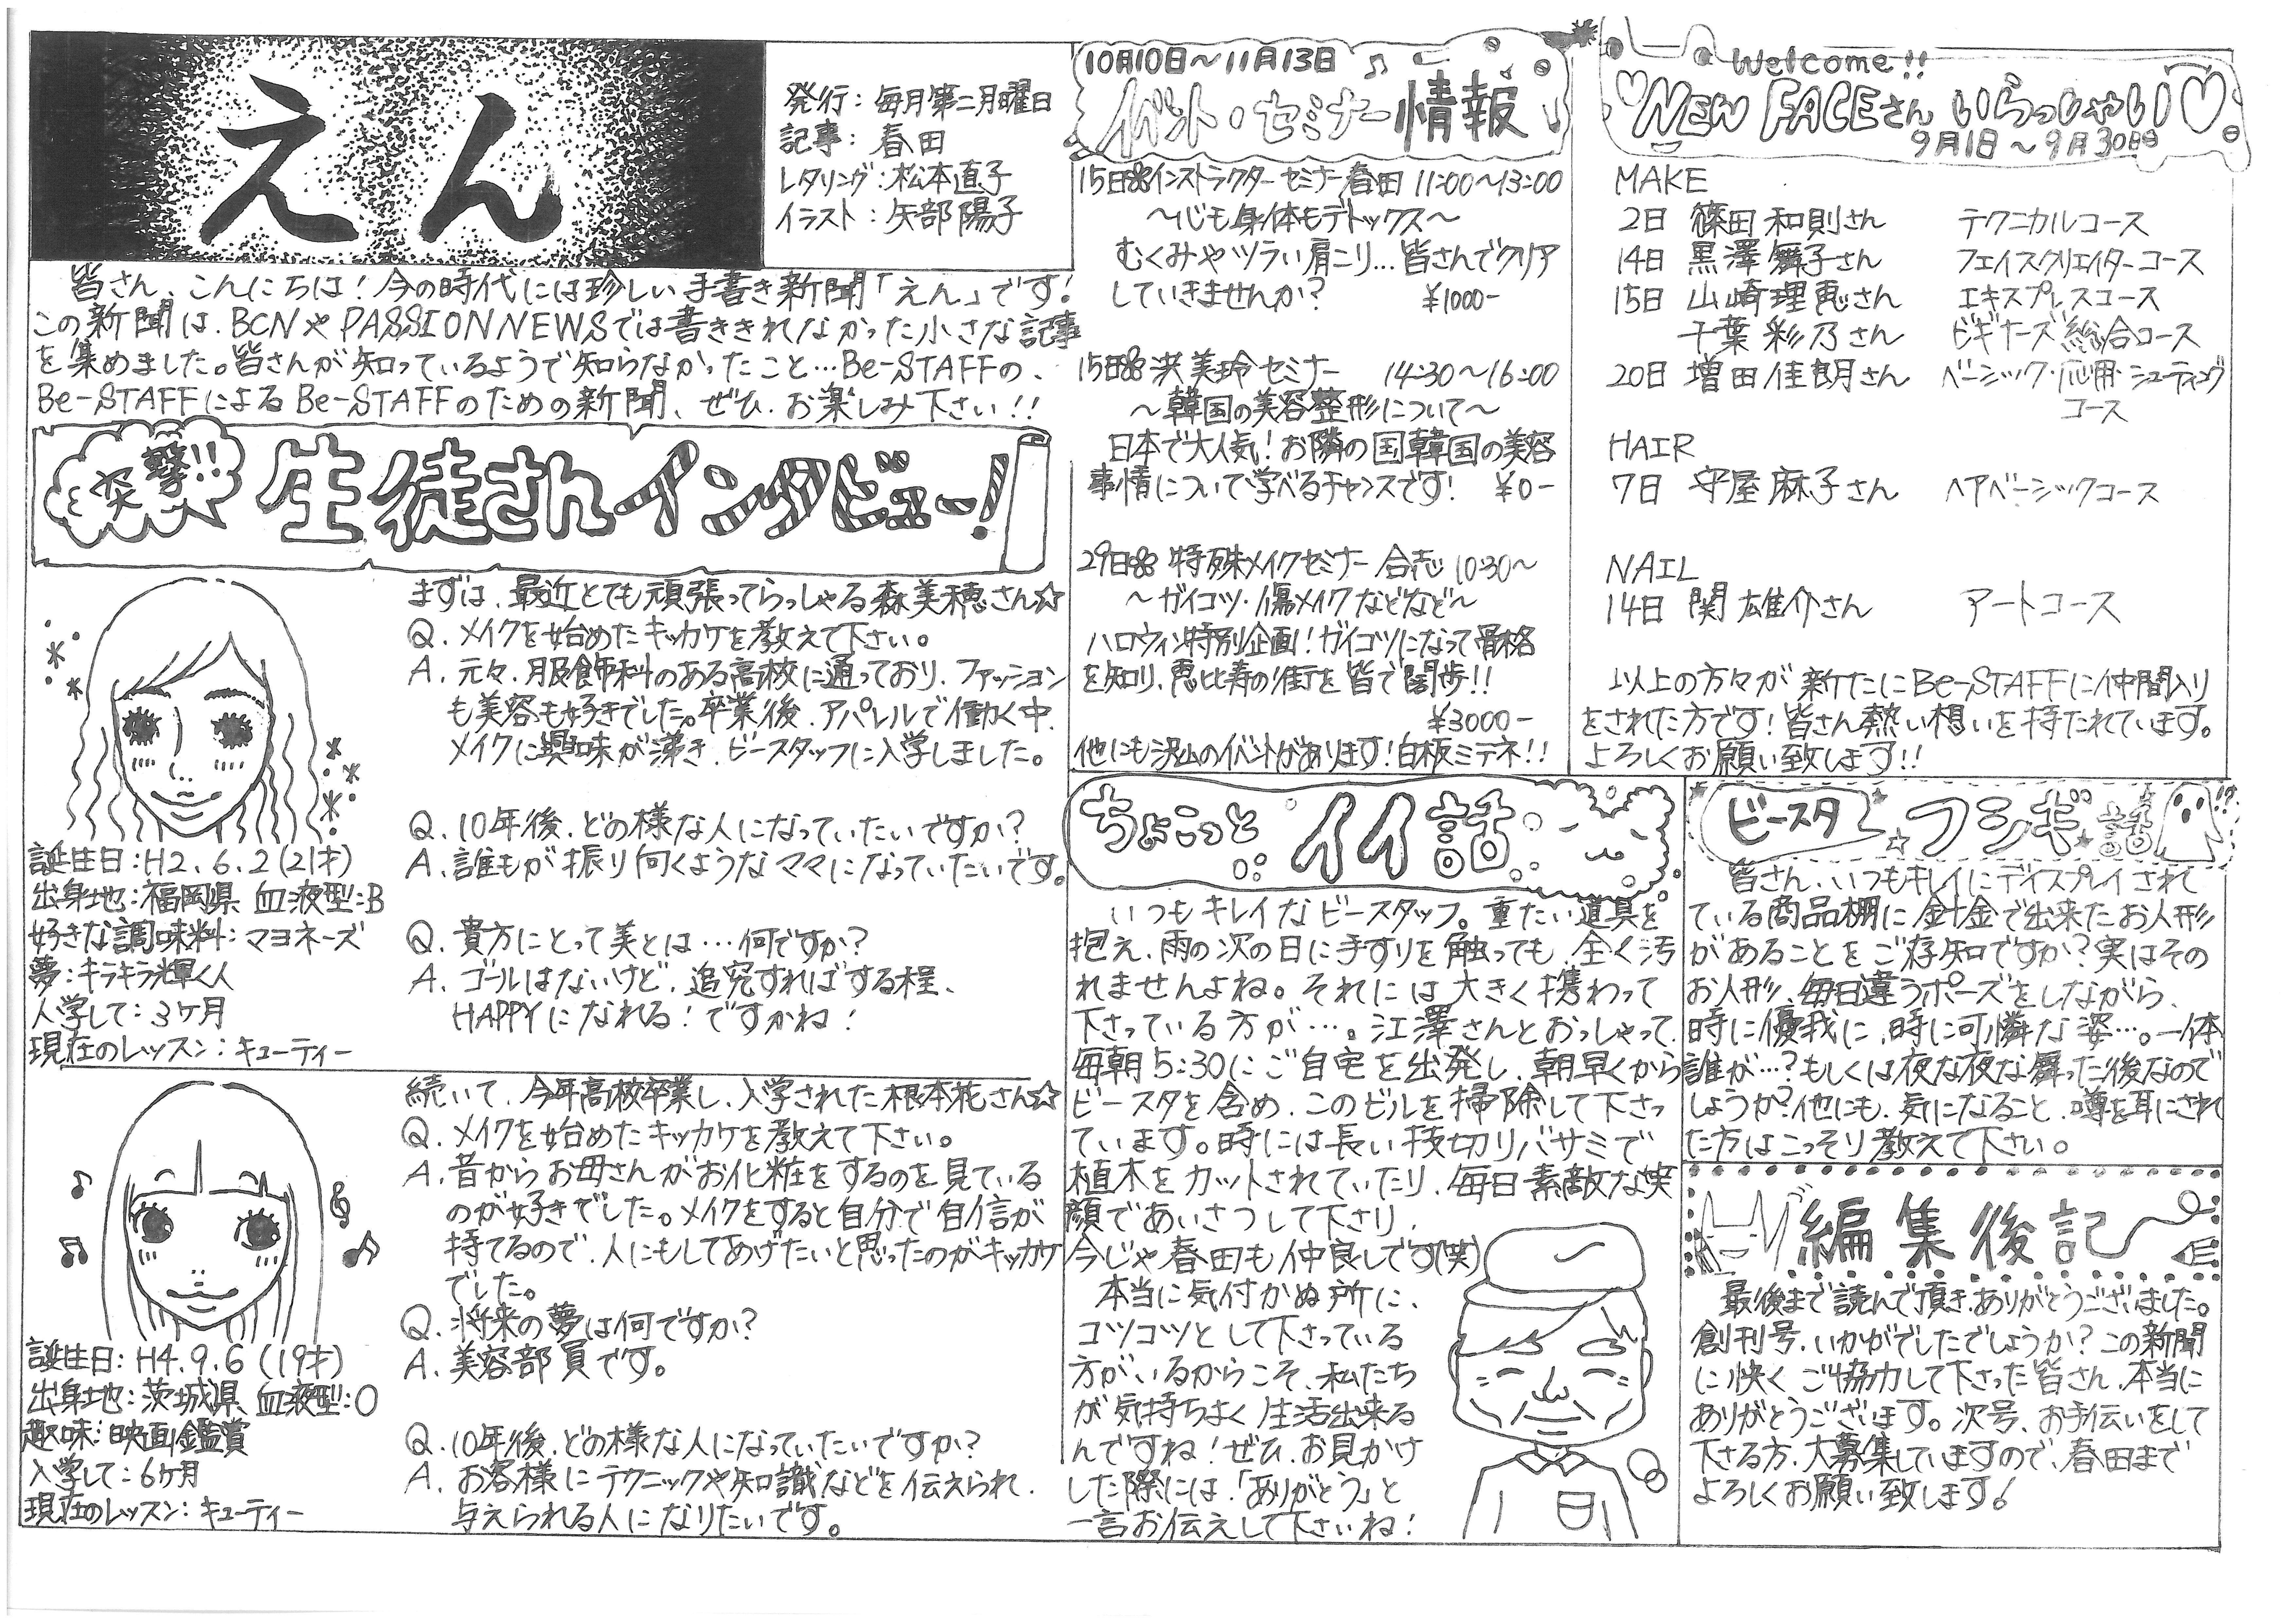 えん
発行：毎月第二月曜日
記事：春田
レタリング：松本直子
イラスト：矢部陽子
皆さん、こんにちは！今の時代には珍しい手書き新聞「えん」です！
この新聞は、BCNやPASSION NEWSでは書ききれなかった小さな記事
を集めました。皆さんが知っているようで知らなかったこと…Be-STAFFの、
Be-STAFFによるBe-STAFFのための新聞、ぜひ、お楽しみ下さい！！
突撃!! 生徒さんインタビュー！
まずは、最近とても頑張ってらっしゃる森美穂さん☆
Q. メイクを始めたキッカケを教えて下さい。
A. 元々、服飾科のある高校に通っており、ファッション
も美容も好きでした。卒業後、アパレルで働く中、
メイクに興味が沸き、ビースタッフに入学しました。
Q. 10年後、どの様な人になっていたいですか？
A. 誰もが振り向くようなママになっていたいです。
Q. 貴方にとって美とは…何ですか？
A. ゴールはないけど、追究すればする程、
HAPPYになれる！ですかね！
誕生日：H2.6.2（21才）
出身地：福岡県 血液型：B
好きな調味料：マヨネーズ
夢：キラキラ輝く人
入学して：3ヶ月
現在のレッスン：キューティー
続いて、今年高校卒業し、入学された根本花さん☆
Q. メイクを始めたキッカケを教えて下さい。
A. 昔からお母さんがお化粧をするのを見ている
のが好きでした。メイクをすると自分で自信が
持てるので、人にもしてあげたいと思ったのがキッカケ
でした。
Q. 将来の夢は何ですか？
A. 美容部員です。
Q. 10年後、どの様な人になっていたいですか？
A. お客様にテクニックや知識などを伝えられ、
与えられる人になりたいです。
誕生日：H4.9.6（19才）
出身地：茨城県 血液型：O
趣味：映画鑑賞
入学して：6ヶ月
現在のレッスン：キューティー
10月10日～11月13日
イベント・セミナー情報
15日 インストラクターセミナー 春田 11:00～13:00
～心も身体もデトックス～
むくみやツラい肩こり…皆さんでクリア
していきませんか？ ¥1000-
15日 洪美玲セミナー 14:30～16:00
～韓国の美容整形について～
日本で大人気！お隣の国韓国の美容
事情について学べるチャンスです！ ¥0-
29日 特殊メイクセミナー 合志 10:30～
～ガイコツ・傷メイクなどなど～
ハロウィン特別企画！ガイコツになって骨格
を知り、恵比寿の街を皆で闊歩！！
¥3000-
他にも沢山のイベントがあります！白板ミテネ！！
Welcome!!
NEW FACEさん いらっしゃい♡
9月1日～9月30日
MAKE
2日 篠田和則さん テクニカルコース
14日 黒澤舞子さん フェイスクリエイターコース
15日 山崎理恵さん エキスプレスコース
千葉彩乃さん ビギナーズ総合コース
20日 増田佳朗さん ベーシック・応用・シューティング
コース
HAIR
7日 守屋麻子さん ヘアベーシックコース
NAIL
14日 関雄介さん アートコース
以上の方々が新たにBe-STAFFに仲間入り
をされた方です！皆さん熱い想いを持たれています。
よろしくお願い致します！！
ちょこっとイイ話
いつもキレイなビースタッフ。重たい道具を
抱え、雨の次の日に手すりを触っても、全く汚
れませんよね。それには大きく携わって
下さっている方が…。江澤さんとおっしゃって、
毎朝5:30にご自宅を出発し、朝早くから
ビースタを含め、このビルを掃除して下さっ
ています。時には長い枝切りバサミで
植木をカットされていたり、毎日素敵な笑
顔であいさつして下さり、
今じゃ春田も仲良しです(笑)
本当に気付かぬ所に、
コツコツとして下さっている
方がいるからこそ、私たち
が気持ちよく生活出来る
んですね！ぜひ、お見かけ
した際には、「ありがとう」と
一言お伝えして下さいね！
ビースタ☆フシギ話
皆さん、いつもキレイにディスプレイされて
ている商品棚に針金で出来たお人形
があることをご存知ですか？実はその
お人形、毎日違うポーズをしながら、
時に優我に、時に可憐な姿…。一体
誰が…？もしくは夜な夜な舞った後なので
しょうか？他にも、気になること、噂を耳にされ
た方はこっそり教えて下さい。
編集後記
最後まで読んで頂き、ありがとうございました。
創刊号、いかがでしたでしょうか？この新聞
に快く、ご協力して下さった皆さん、本当に
ありがとうございます。次号、お手伝いをして
下さる方、大募集していますので、春田まで
よろしくお願い致します！